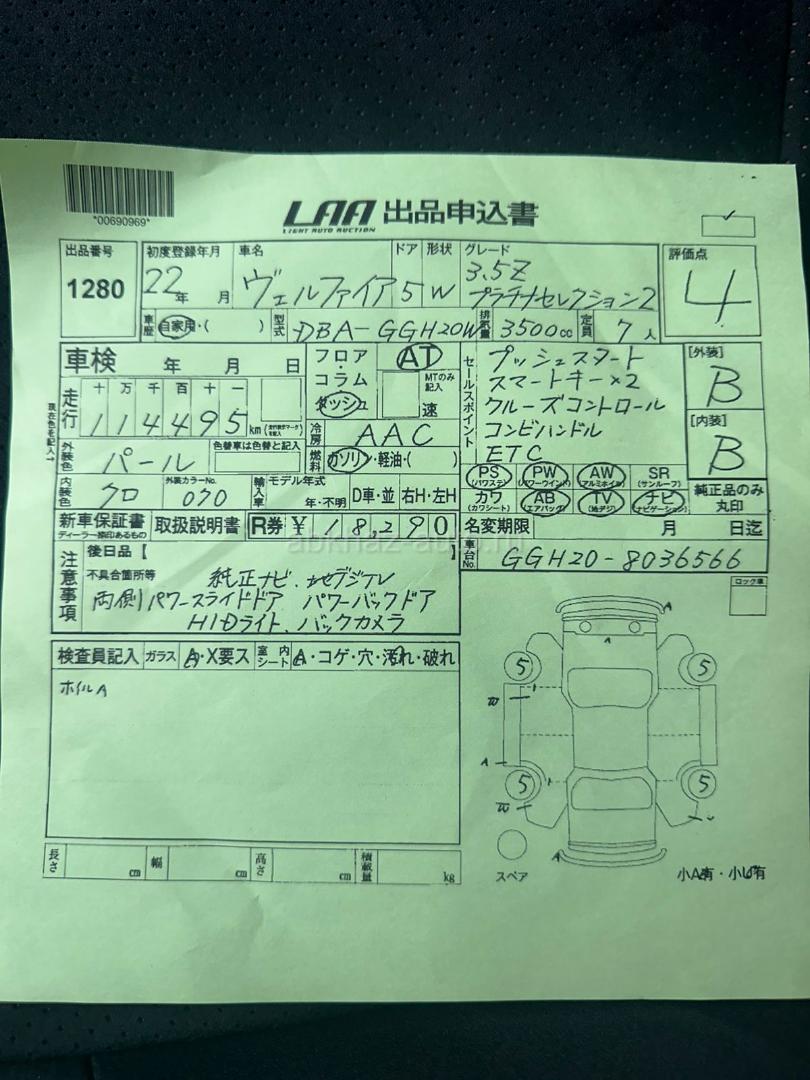 *00690969*
LAA 出品申込書
LIGHT AUTO AUCTION
出品番号 初度登録年月 車名 ドア 形状 グレード 評価点
1280 22年 月 ヴェルファイア 5 W 3.5Z
プラチナセレクション2
4
車歴 自家用・( ) 型式 DBA-GGH20W 排気量 3500cc 定員 7人
車検 年 月 日
フロア・コラム ダッシュ AT MTのみ記入 速
セールスポイント
プッシュスタート
スマートキー×2
クルーズコントロール
コンビハンドル
ETC
[外装]
B
[内装]
B
現在色を記入
走行 十 万 千 百 十 一
114495 km
冷房 AAC
外装色 パール 色替車は色替と記入
燃料 ガソリン・軽油・( )
内装色 クロ 外装カラーNo. 070
輸入車 モデル年式 年・不明 D車・並 右H・左H
PS (パワステ) PW (パワーウインド) AW (アルミホイル) SR (サンルーフ)
カワ (カワシート) AB (エアバッグ) TV (地デジ) ナビ (ナビゲーション)
純正品のみ丸印
新車保証書 ディーラー捺印あるもの 取扱説明書 R券 ¥ 18,290
名変期限 月 日迄
車台No. GGH20-8036566
abkhaz-auto.ru
注意事項
後日品【 】
不具合箇所等
純正ナビ、地デジTV
両側パワースライドドア パワーバックドア
HIDライト、バックカメラ
ロック車
検査員記入 ガラス A・X要ス 室内シート A・コゲ・穴・汚れ・破れ
ホイルA
A
A
5 5
W
A
5 5
W
A
スペア
小A有・小U有
長さ cm 幅 cm 高さ cm 積載量 kg